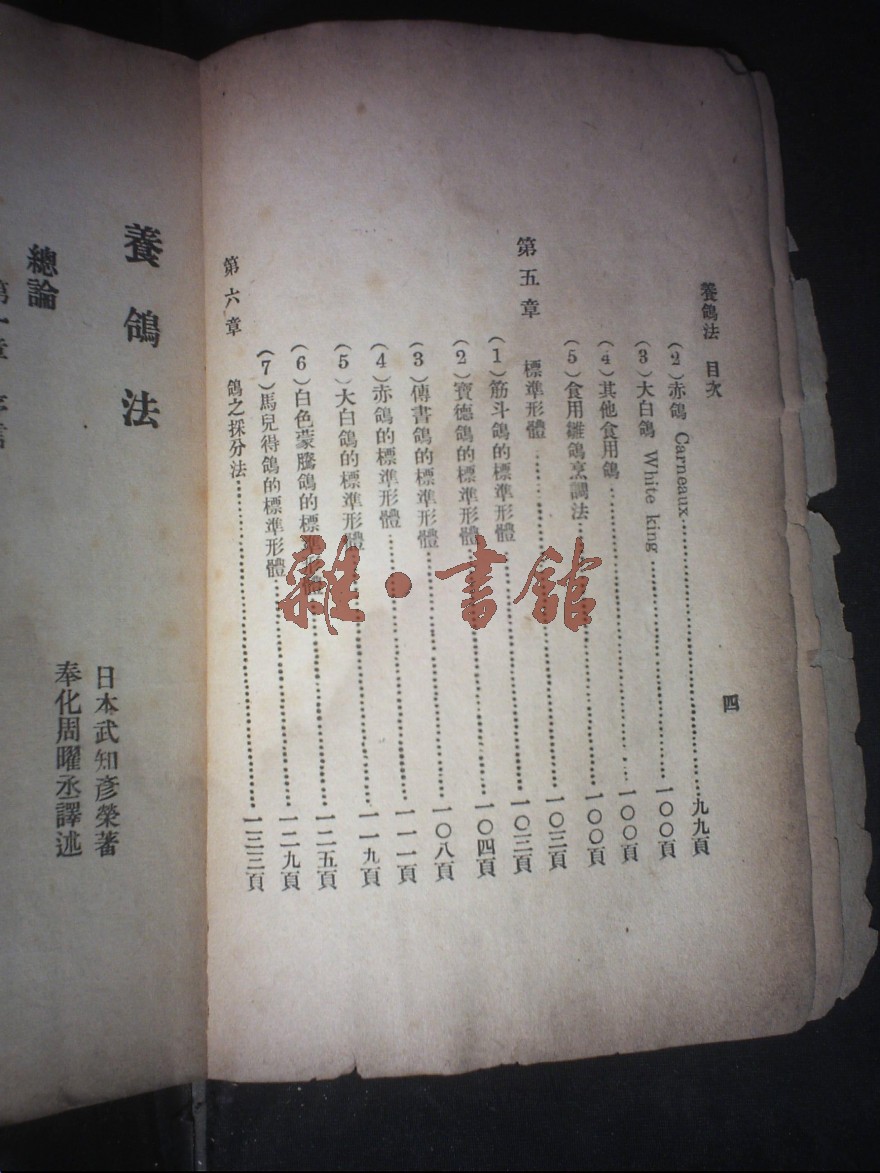 養鴿法 目次
四
(2)赤鴿 Carneaux……九九頁
(3)大白鴿 White king……一〇〇頁
(4)其他食用鴿……一〇〇頁
(5)食用雛鴿烹調法……一〇〇頁
第五章 標準形體……一〇三頁
(1)筋斗鴿的標準形體……一〇三頁
(2)寶德鴿的標準形體……一〇四頁
(3)傳書鴿的標準形體……一〇八頁
(4)赤鴿的標準形體……一一一頁
(5)大白鴿的標準形體……一一九頁
(6)白色蒙騰鴿的標準形體……一二五頁
(7)馬兒得鴿的標準形體……一二九頁
第六章 鴿之採分法……一三三頁
養鴿法
日本武知彥榮著
奉化周曜丞譯述
總論
第一章
雜·書館